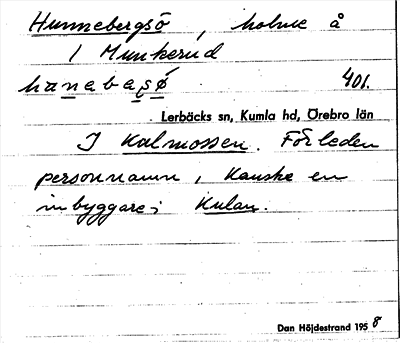 Hunnebergsö, holme å
1 Munkerud
hanebasø 401.
Lerbäcks sn, Kumla hd, Örebro län
I Kalmossen. Förleden
personnamn, kanske en
inbyggare i Kulan.
Dan Höjdestrand 1958